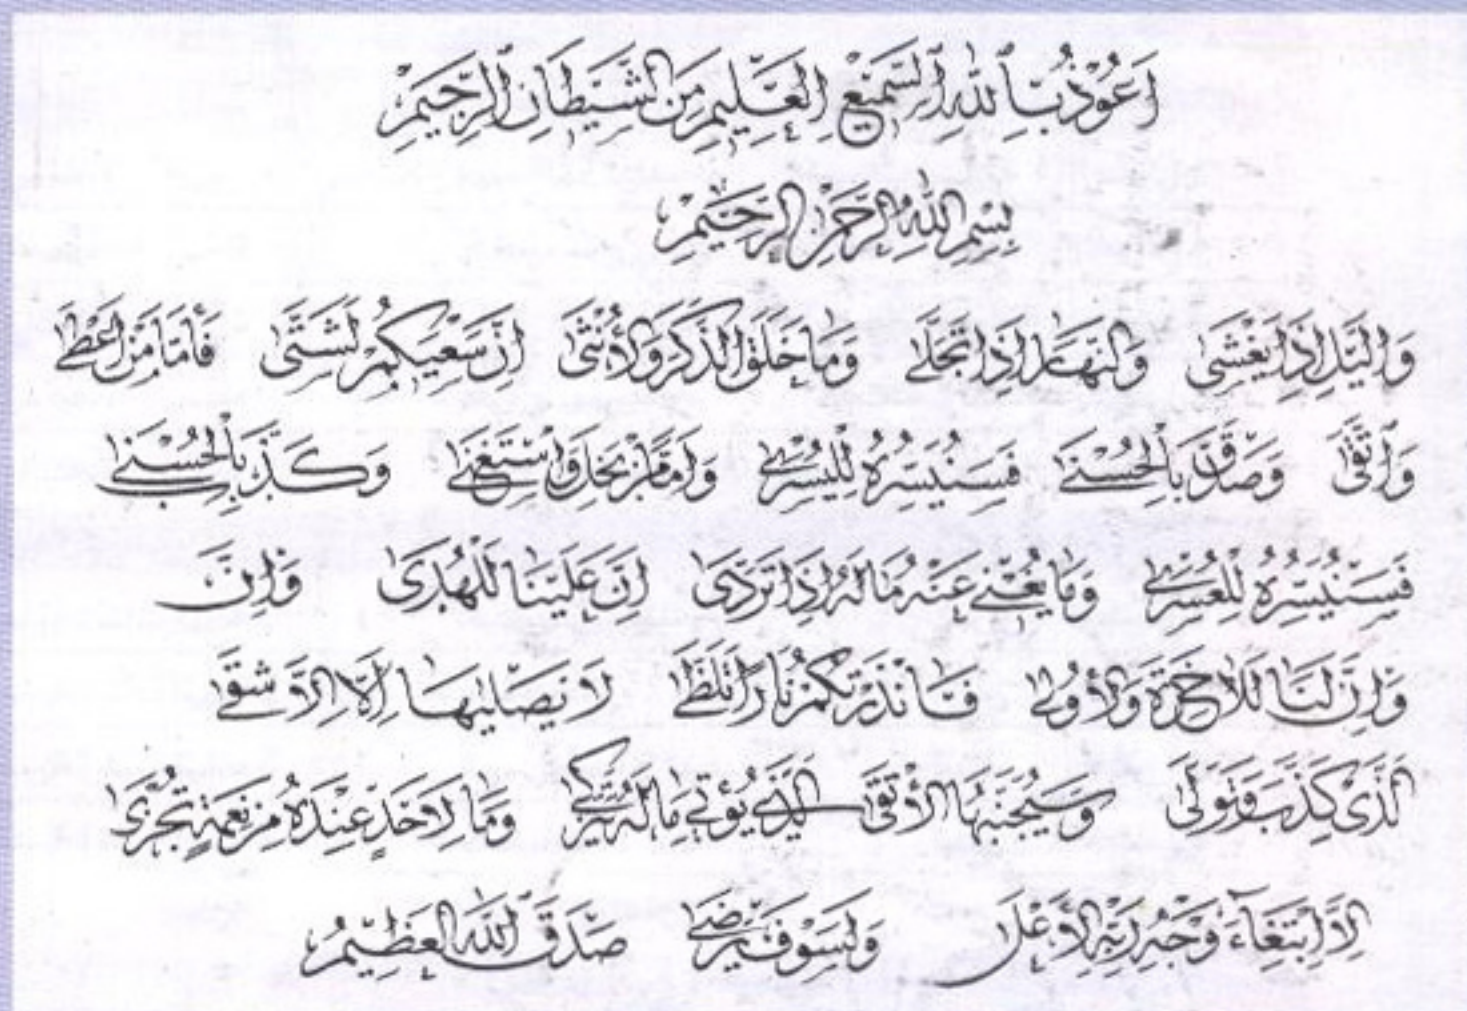 اَعُوْذُ بِٱللّٰهِ ٱلسَّمِيْعِ الْعَلِيْمِ مِنَ الشَّيْطَانِ ٱلرَّجِيْمِ
بِسْمِ اللّٰهِ الرَّحْمٰنِ الرَّحِيْمِ
وَالَّيْلِ اِذَا يَغْشَى وَالنَّهَارِ اِذَا تَجَلَّى وَمَا خَلَقَ الذَّكَرَ وَالْأُنْثَى اِنَّ سَعْيَكُمْ لَشَتَّى فَأَمَّا مَنْ اَعْطَى
وَٱتَّقَى وَصَدَّقَ بِٱلْحُسْنَى فَسَنُيَسِّرُهُ لِلْيُسْرَى وَاَمَّا مَنْ بَخِلَ وَٱسْتَغْنَى وَكَذَّبَ بِٱلْحُسْنَى
فَسَنُيَسِّرُهُ لِلْعُسْرَى وَمَا يُغْنِى عَنْهُ مَالُهُ اِذَا تَرَدَّى اِنَّ عَلَيْنَا لَلْهُدَى وَاِنَّ
وَاِنَّ لَنَا لَلْاٰخِرَةَ وَالْأُوْلَى فَأَنْذَرْتُكُمْ نَارًا تَلَظَّى لَا يَصْلٰيهَا اِلَّا الْأَشْقَى
اَلَّذِى كَذَّبَ وَتَوَلَّى وَسَيُجَنَّبُهَا الْأَتْقَى الَّذِى يُؤْتِى مَالَهُ يَتَزَكَّى وَمَا لِأَحَدٍ عِنْدَهُ مِنْ نِعْمَةٍ تُجْزَى
اِلَّا ابْتِغَآءَ وَجْهِ رَبِّهِ الْأَعْلَى وَلَسَوْفَ يَرْضَى صَدَقَ ٱللّٰهُ الْعَظِيْمُ